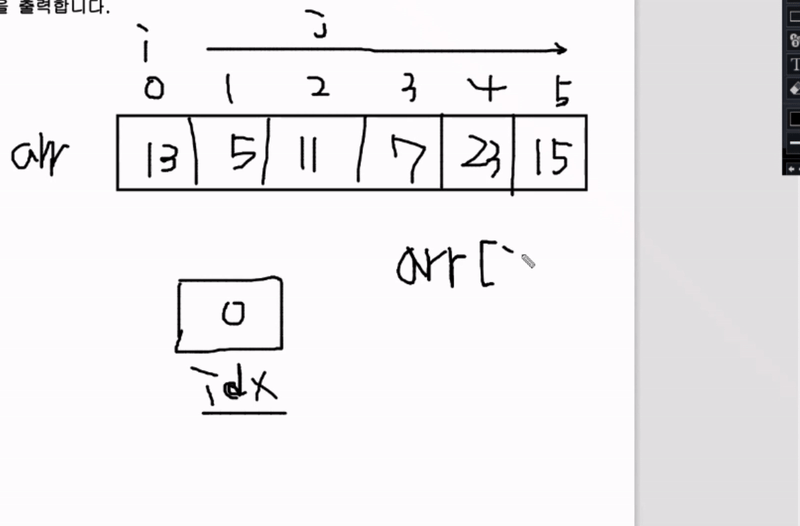 을 출력합니다.
i j
0 1 2 3 4 5
arr 13 5 11 7 23 15
arr[
0
idx